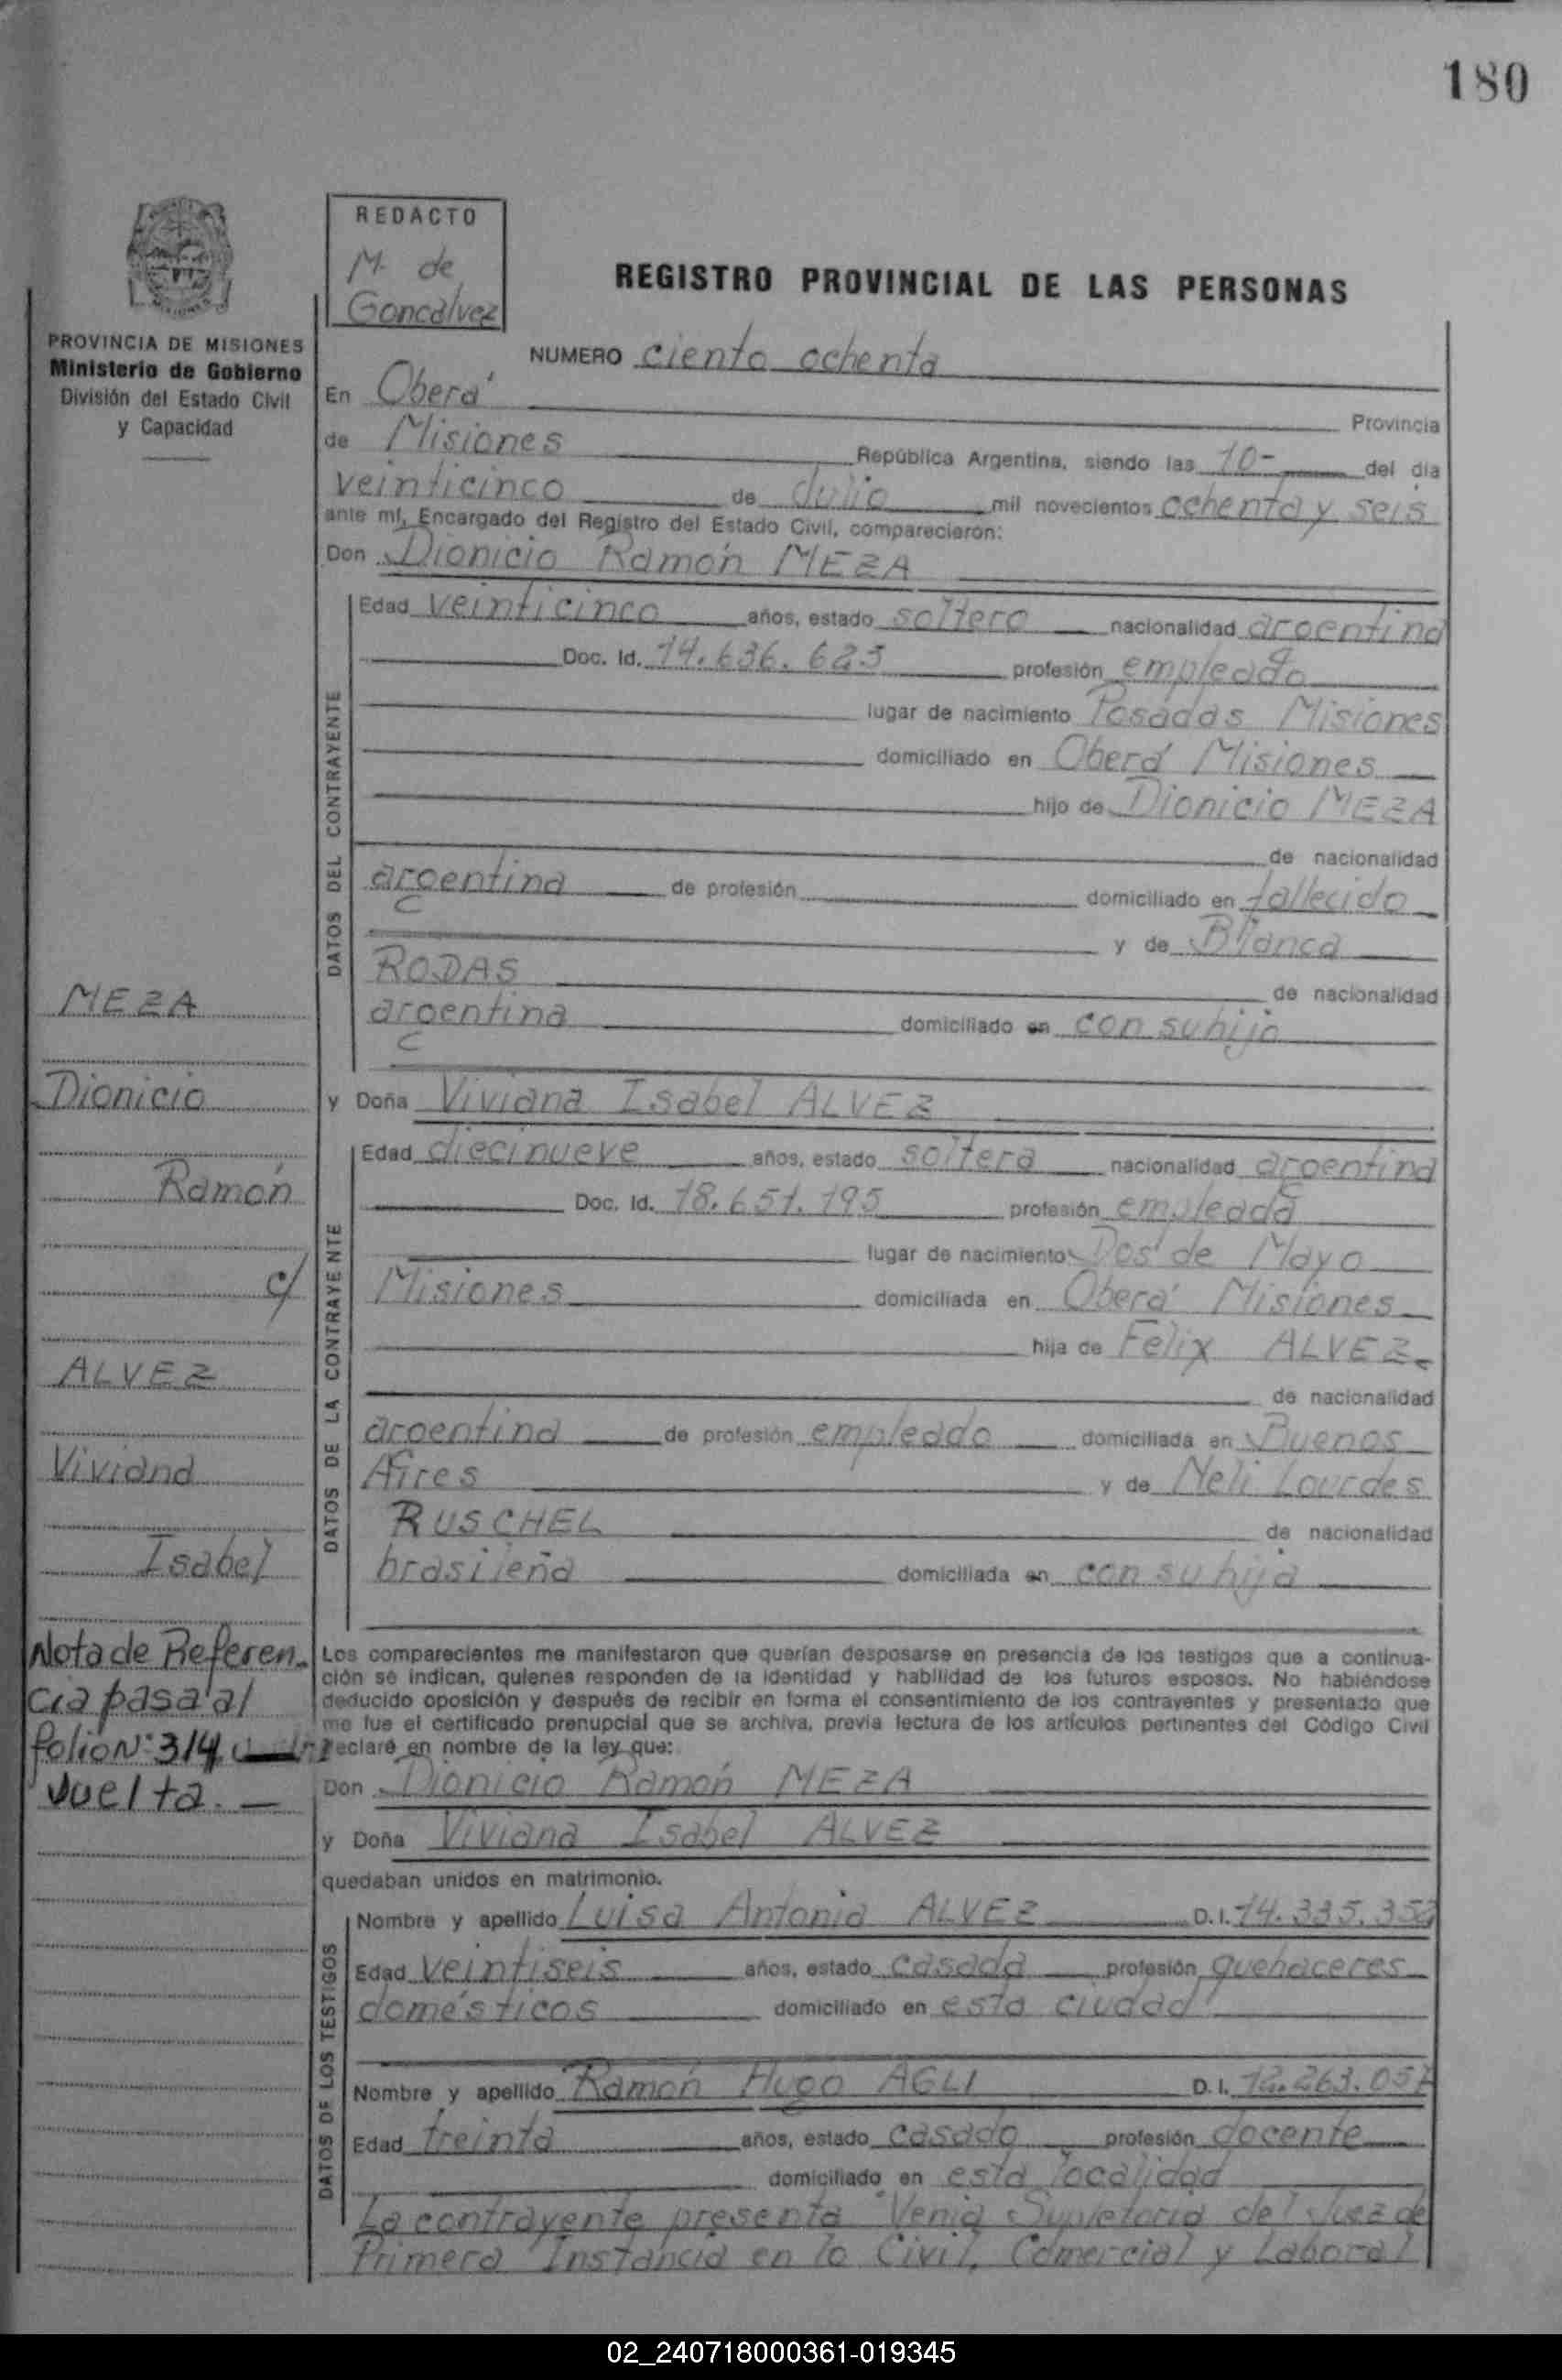 180
REDACTO
M. de
Goncalvez
REGISTRO PROVINCIAL DE LAS PERSONAS
PROVINCIA DE MISIONES
Ministerio de Gobierno
División del Estado Civil
y Capacidad
NUMERO ciento ochenta
En Oberá Provincia
de Misiones República Argentina, siendo las 10- del día
veinticinco de Julio mil novecientos ochenta y seis
ante mí, Encargado del Registro del Estado Civil, comparecieron:
Don Dionicio Ramón MEZA
DATOS DEL CONTRAYENTE
Edad veinticinco años, estado soltero nacionalidad argentina
Doc. Id. 14.636.623 profesión empleado
lugar de nacimiento Posadas Misiones
domiciliado en Oberá Misiones
hijo de Dionicio MEZA
de nacionalidad
argentina de profesión domiciliado en fallecido
y de Blanca
RODAS de nacionalidad
argentina domiciliado en con su hijo
y Doña Viviana Isabel ALVEZ
DATOS DE LA CONTRAYENTE
Edad diecinueve años, estado soltera nacionalidad argentina
Doc. Id. 18.651.195 profesión empleada
lugar de nacimiento Dos de Mayo
Misiones domiciliada en Oberá Misiones
hija de Felix ALVEZ
de nacionalidad
argentina de profesión empleado domiciliada en Buenos
Aires y de Neli Lourdes
RUSCHEL de nacionalidad
brasileña domiciliada en con su hija
MEZA
Dionicio
Ramón
c/
ALVEZ
Viviana
Isabel
Nota de Referen-
cia pasa al
folio Nº 314
vuelta.-
Los comparecientes me manifestaron que querían desposarse en presencia de los testigos que a continua-
ción se indican, quienes responden de la identidad y habilidad de los futuros esposos. No habiéndose
deducido oposición y después de recibir en forma el consentimiento de los contrayentes y presentado que
me fue el certificado prenupcial que se archiva, previa lectura de los artículos pertinentes del Código Civil
declaré en nombre de la ley que:
Don Dionicio Ramón MEZA
y Doña Viviana Isabel ALVEZ
quedaban unidos en matrimonio.
DATOS DE LOS TESTIGOS
Nombre y apellido Luisa Antonia ALVEZ D.I. 14.335.352
Edad veintiseis años, estado casada profesión quehaceres
domésticos domiciliado en esta ciudad
Nombre y apellido Ramón Hugo AGLI D.I. 12.263.057
Edad treinta años, estado casado profesión docente
domiciliado en esta localidad
La contrayente presenta Venia Supletoria del Juez de
Primera Instancia en lo Civil, Comercial y Laboral
02_240718000361-019345